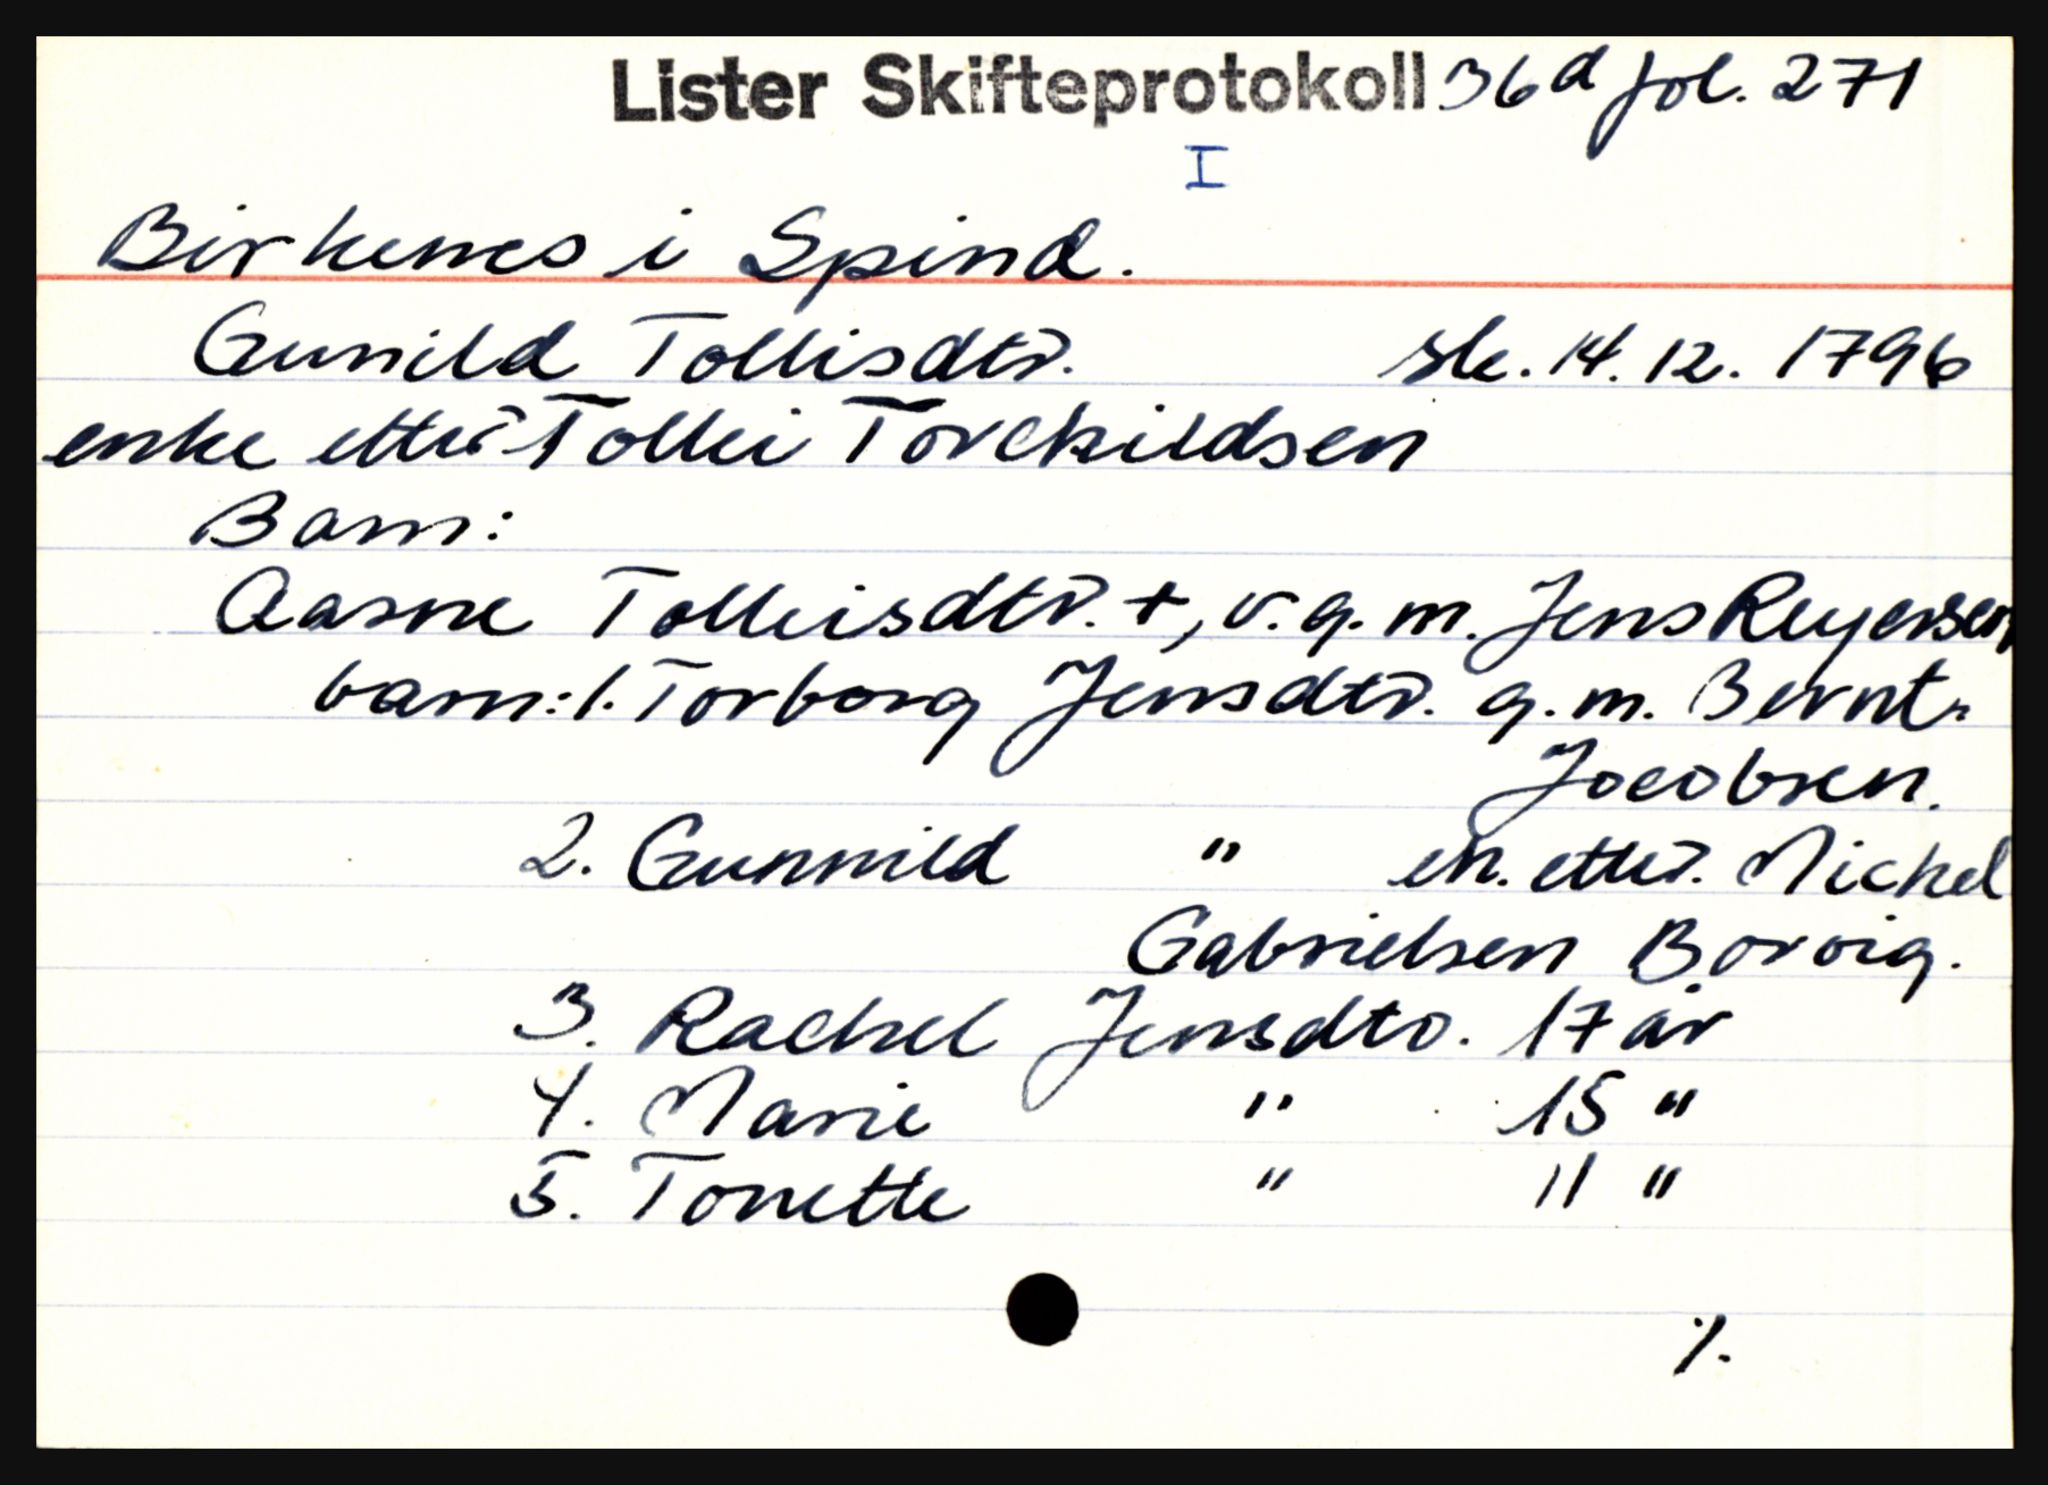 Lister Skifteprotokoll 36d fol. 271
I
Birkenes i Spind.
Gunild Tollisdtr. sk. 14.12.1796
enke etter Tollei Torchildsen
Barn:
Aasne Tolleisdtr. +, v.g.m. Jens Reyersen
barn: 1. Torborg Jensdtr. g.m. Bernt
Jocobsen.
2. Gunnild " en. etter. Michel
Gabrielsen Borvig.
3. Rachel Jensdtr. 17 år
4. Marie " 15 "
5. Tonette " 11 "
%.